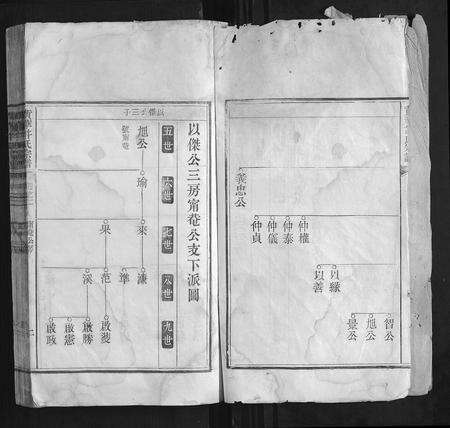 義忠公
仲權
仲泰
仲儀
仲貞
以緣
以善
智公
旭公
曇公
以傑公三房甯菴公支下派圖
五世
六世
七世
八世
九世
以傑公三子
旭公
號甯菴
瑜
來
果
濂
準
范
溪
啟菱
啟勝
啟憲
啟政